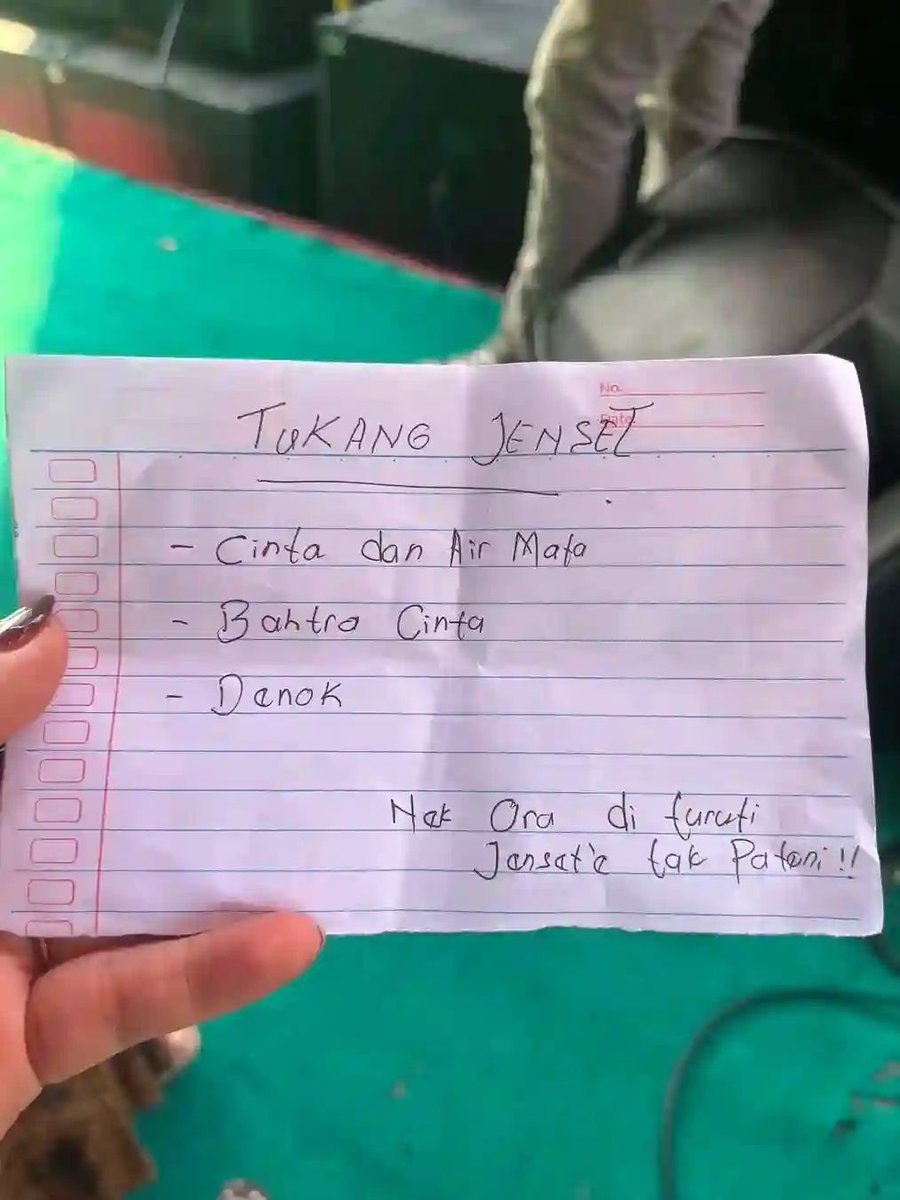 No.
Date
TUKANG JENSET
- Cinta dan Air Mata
- Bahtra Cinta
- Denok
Nek Ora di turuti
Jenset'e tak Pateni!!